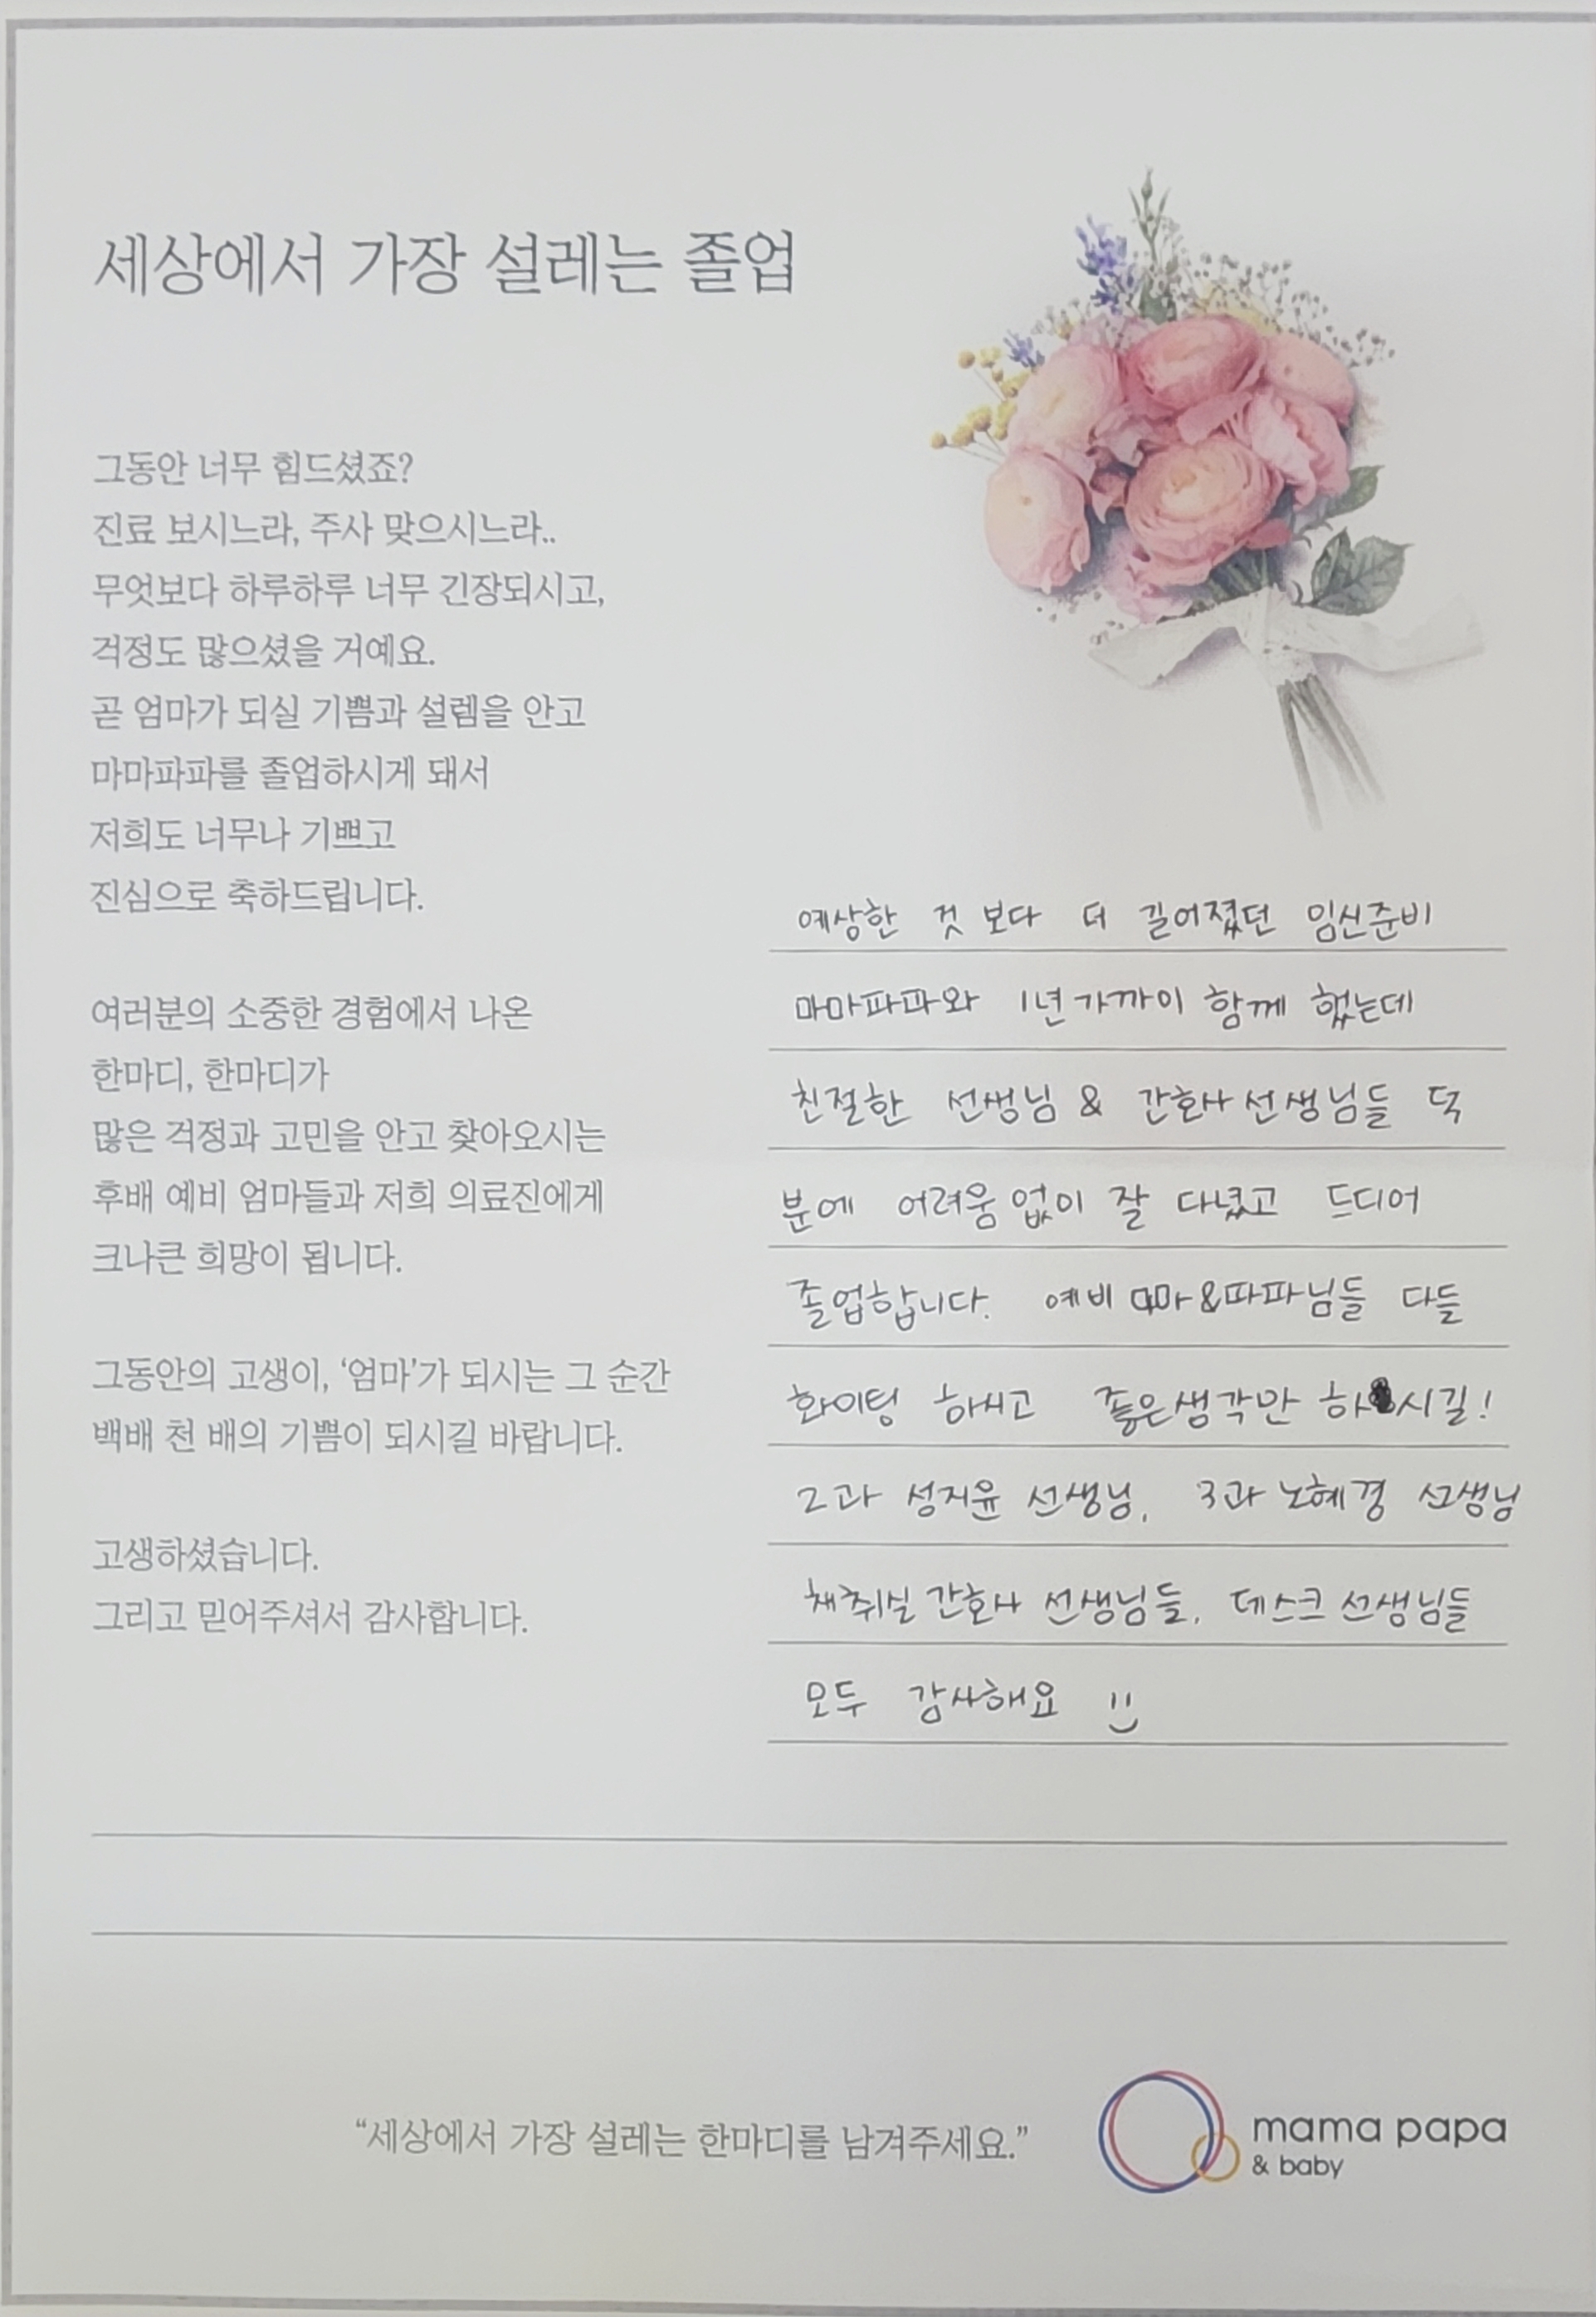 세상에서 가장 설레는 졸업
그동안 너무 힘드셨죠?
진료 보시느라, 주사 맞으시느라..
무엇보다 하루하루 너무 긴장되시고,
걱정도 많으셨을 거예요.
곧 엄마가 되실 기쁨과 설렘을 안고
마마파파를 졸업하시게 돼서
저희도 너무나 기쁘고
진심으로 축하드립니다.
여러분의 소중한 경험에서 나온
한마디, 한마디가
많은 걱정과 고민을 안고 찾아오시는
후배 예비 엄마들과 저희 의료진에게
크나큰 희망이 됩니다.
그동안의 고생이, ‘엄마’가 되시는 그 순간
백배 천 배의 기쁨이 되시길 바랍니다.
고생하셨습니다.
그리고 믿어주셔서 감사합니다.
예상한 것 보다 더 길어졌던 임신준비
마마파파와 1년 가까이 함께 했는데
친절한 선생님 & 간호사 선생님들 덕
분에 어려움 없이 잘 다녔고 드디어
졸업합니다. 예비 마마&파파님들 다들
화이팅 하시고 좋은생각만 하시길!
2과 성지윤 선생님, 3과 노혜경 선생님
채취실 간호사 선생님들, 데스크 선생님들
모두 감사해요
“세상에서 가장 설레는 한마디를 남겨주세요.”
mama papa
& baby